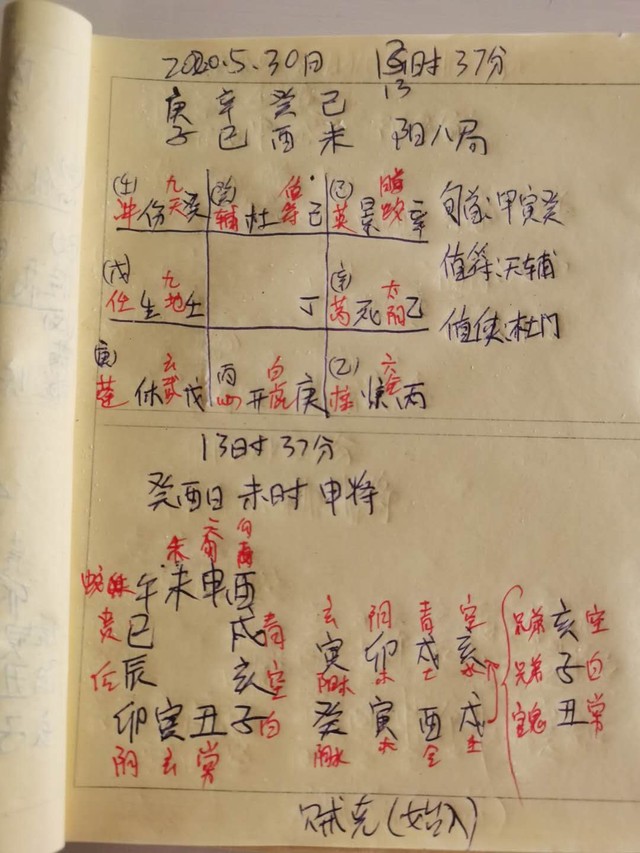 2020.5.30日 13时37分
13
庚 辛 癸 己
子 巳 酉 未 阳八局
(壬) 九天 (癸) 值符 (己)
冲 伤 癸 辅 杜 己 英 景 辛 旬首:甲寅癸
值符:天辅
(戊) 九地 (辛) 太阴
任 生 壬 丁 芮 死 乙 值使:杜门
(庚) 玄武 丙 白虎 (乙) 六合
蓬 休 戊 心 开 庚 柱 惊 丙
13时37分
癸酉日 未时 申将
午 未 申 酉
贵 巳 戌 青 玄 阴 青 空 兄弟 亥 空
辰 亥 空 寅 卯 戌 亥 兄弟 子 白
卯 寅 丑 子 白 癸 寅 酉 戌 官鬼 丑 常
阴 玄 常 阳水 木 金 土
贼克(始入)